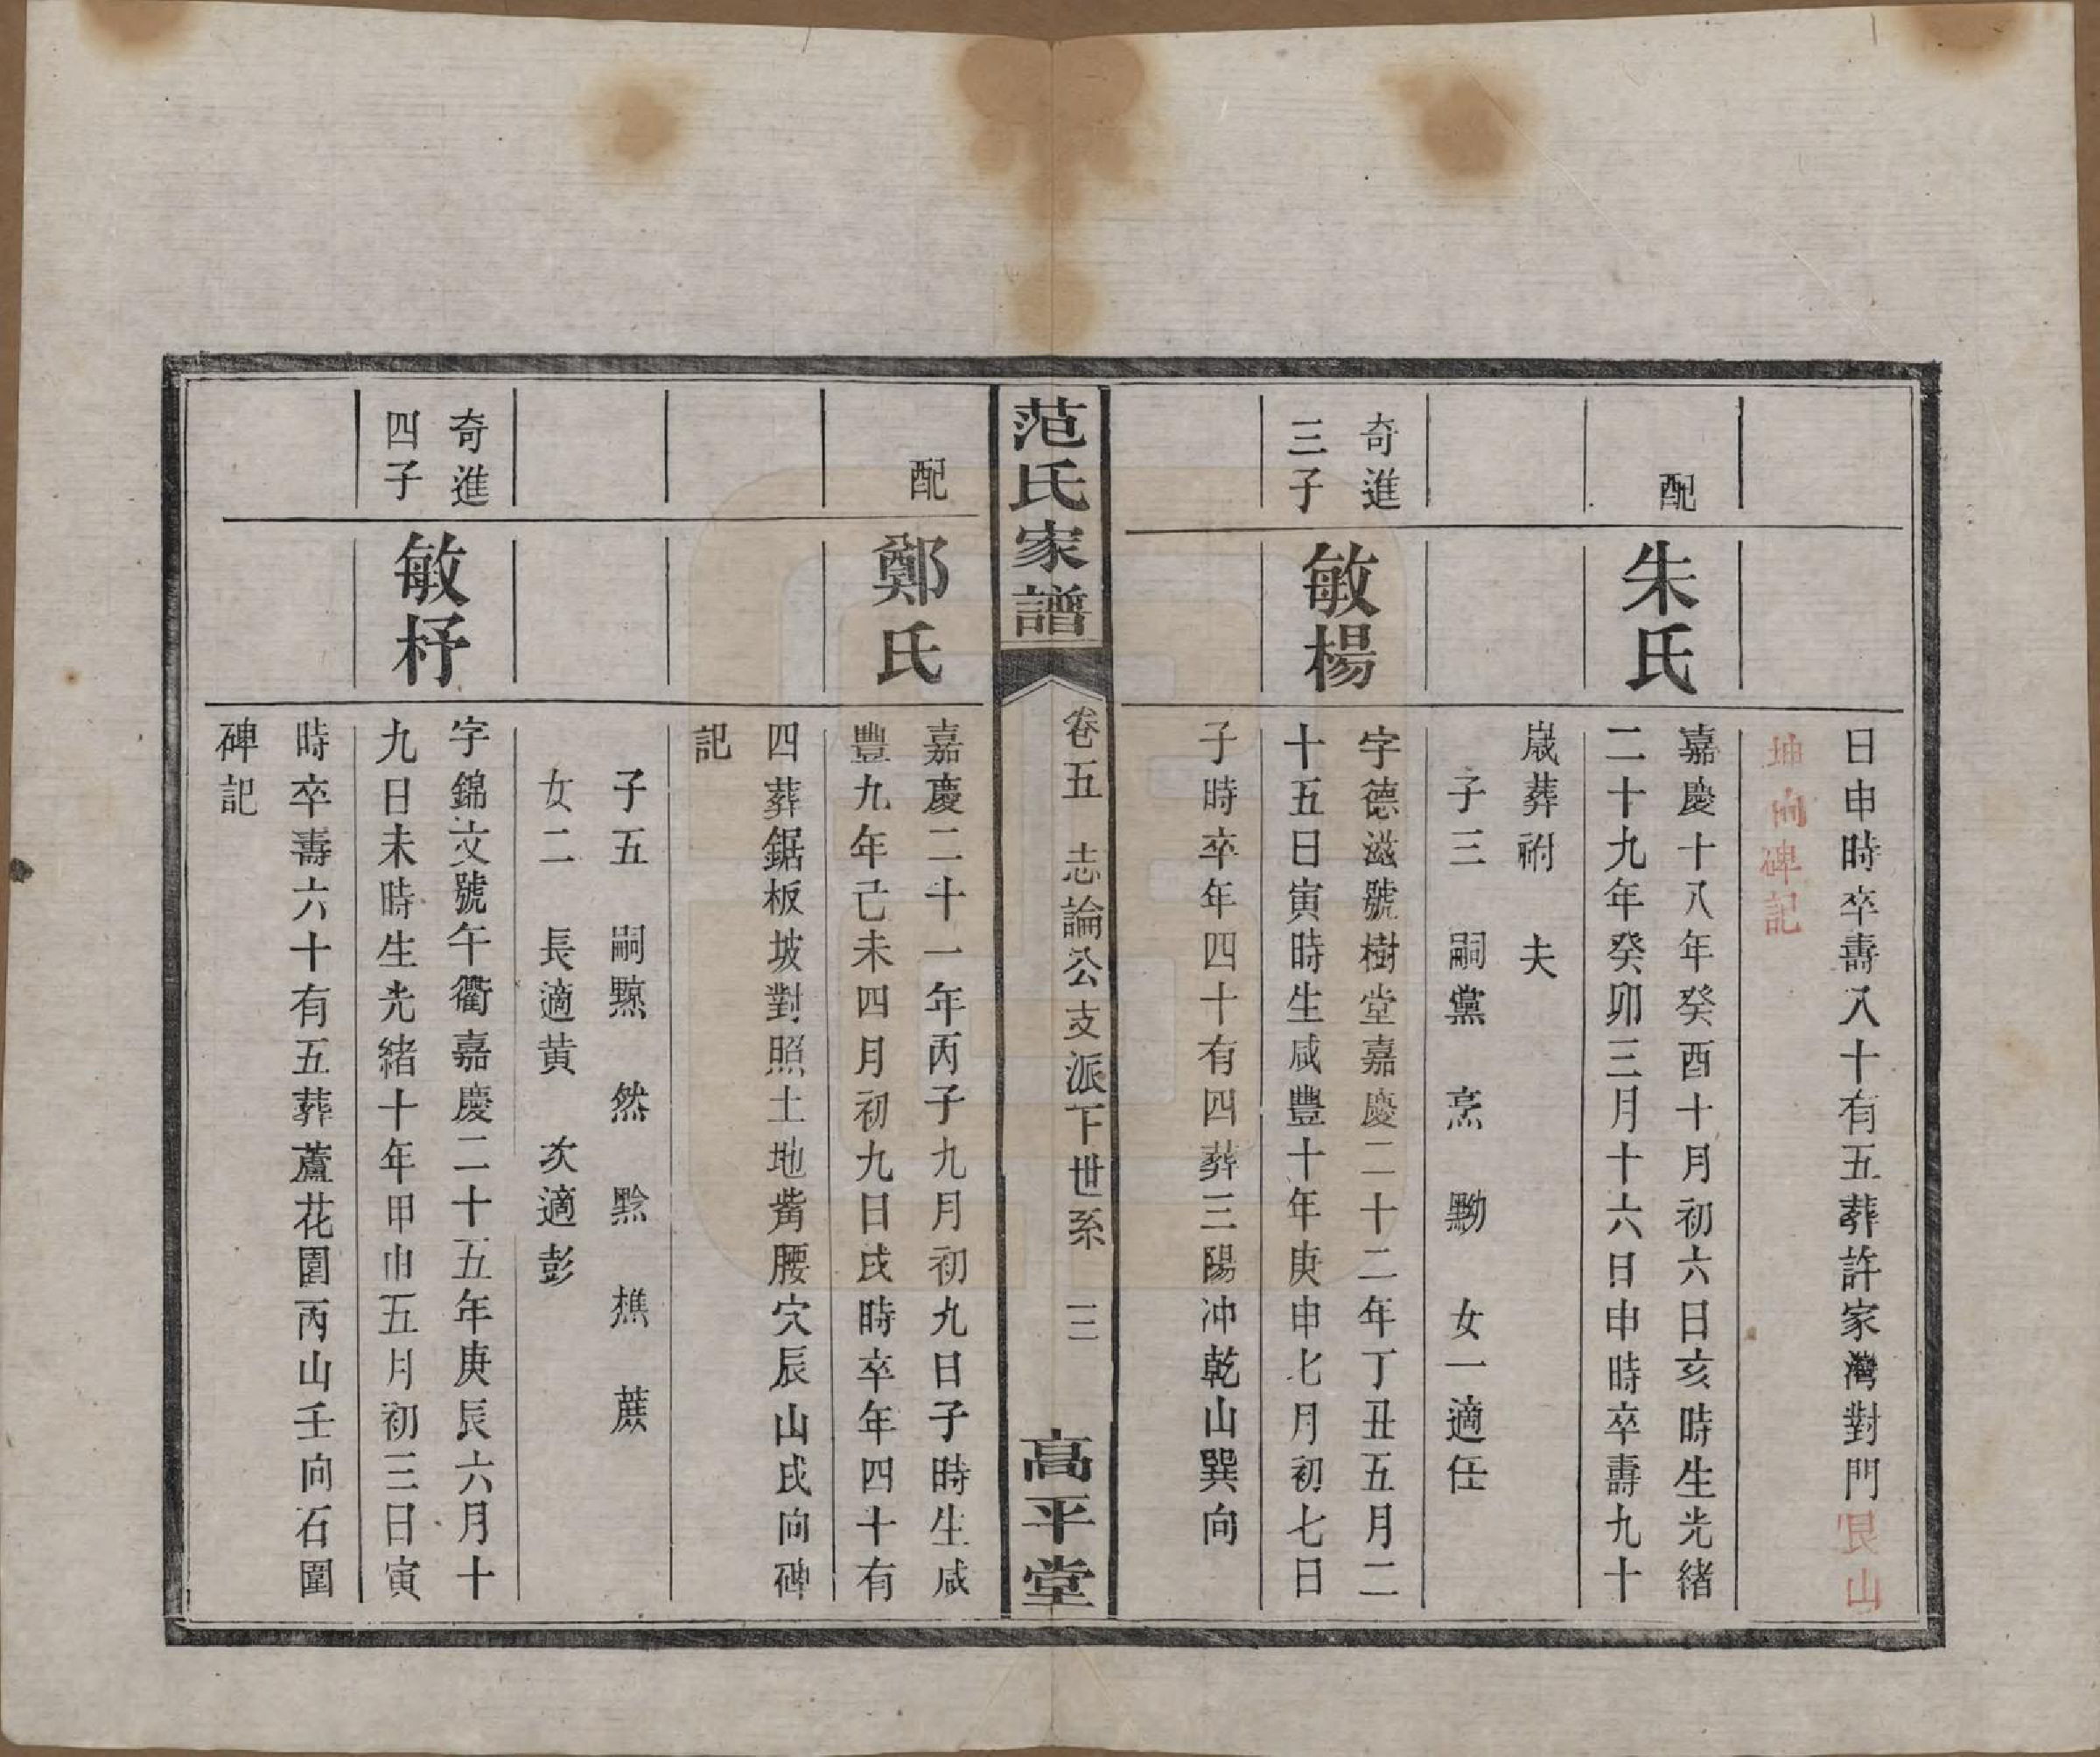 日申時卒壽八十有五葬許家灣對門艮山
坤向碑記
配
朱氏
嘉慶十八年癸酉十月初六日亥時生光緒
二十九年癸卯三月十六日申時卒壽九十
歲葬祔　夫
子三　嗣黨　烹　黝　女一適任
奇進
三子
敏楊
字德滋號樹堂嘉慶二十二年丁丑五月二
十五日寅時生咸豐十年庚申七月初七日
子時卒年四十有四葬三陽冲乾山巽向
范氏家譜
卷五　志論公支派下世系　三
高平堂
配
鄭氏
嘉慶二十一年丙子九月初九日子時生咸
豐九年己未四月初九日戌時卒年四十有
四葬鋸板坡對照土地觜腰穴辰山戌向碑
記
子五　嗣黥　然　黔　樵　蔗
女二　長適黄　次適彭
奇進
四子
敏杼
字錦文號午衢嘉慶二十五年庚辰六月十
九日未時生光緒十年甲申五月初三日寅
時卒壽六十有五葬蘆花園丙山壬向石圍
碑記